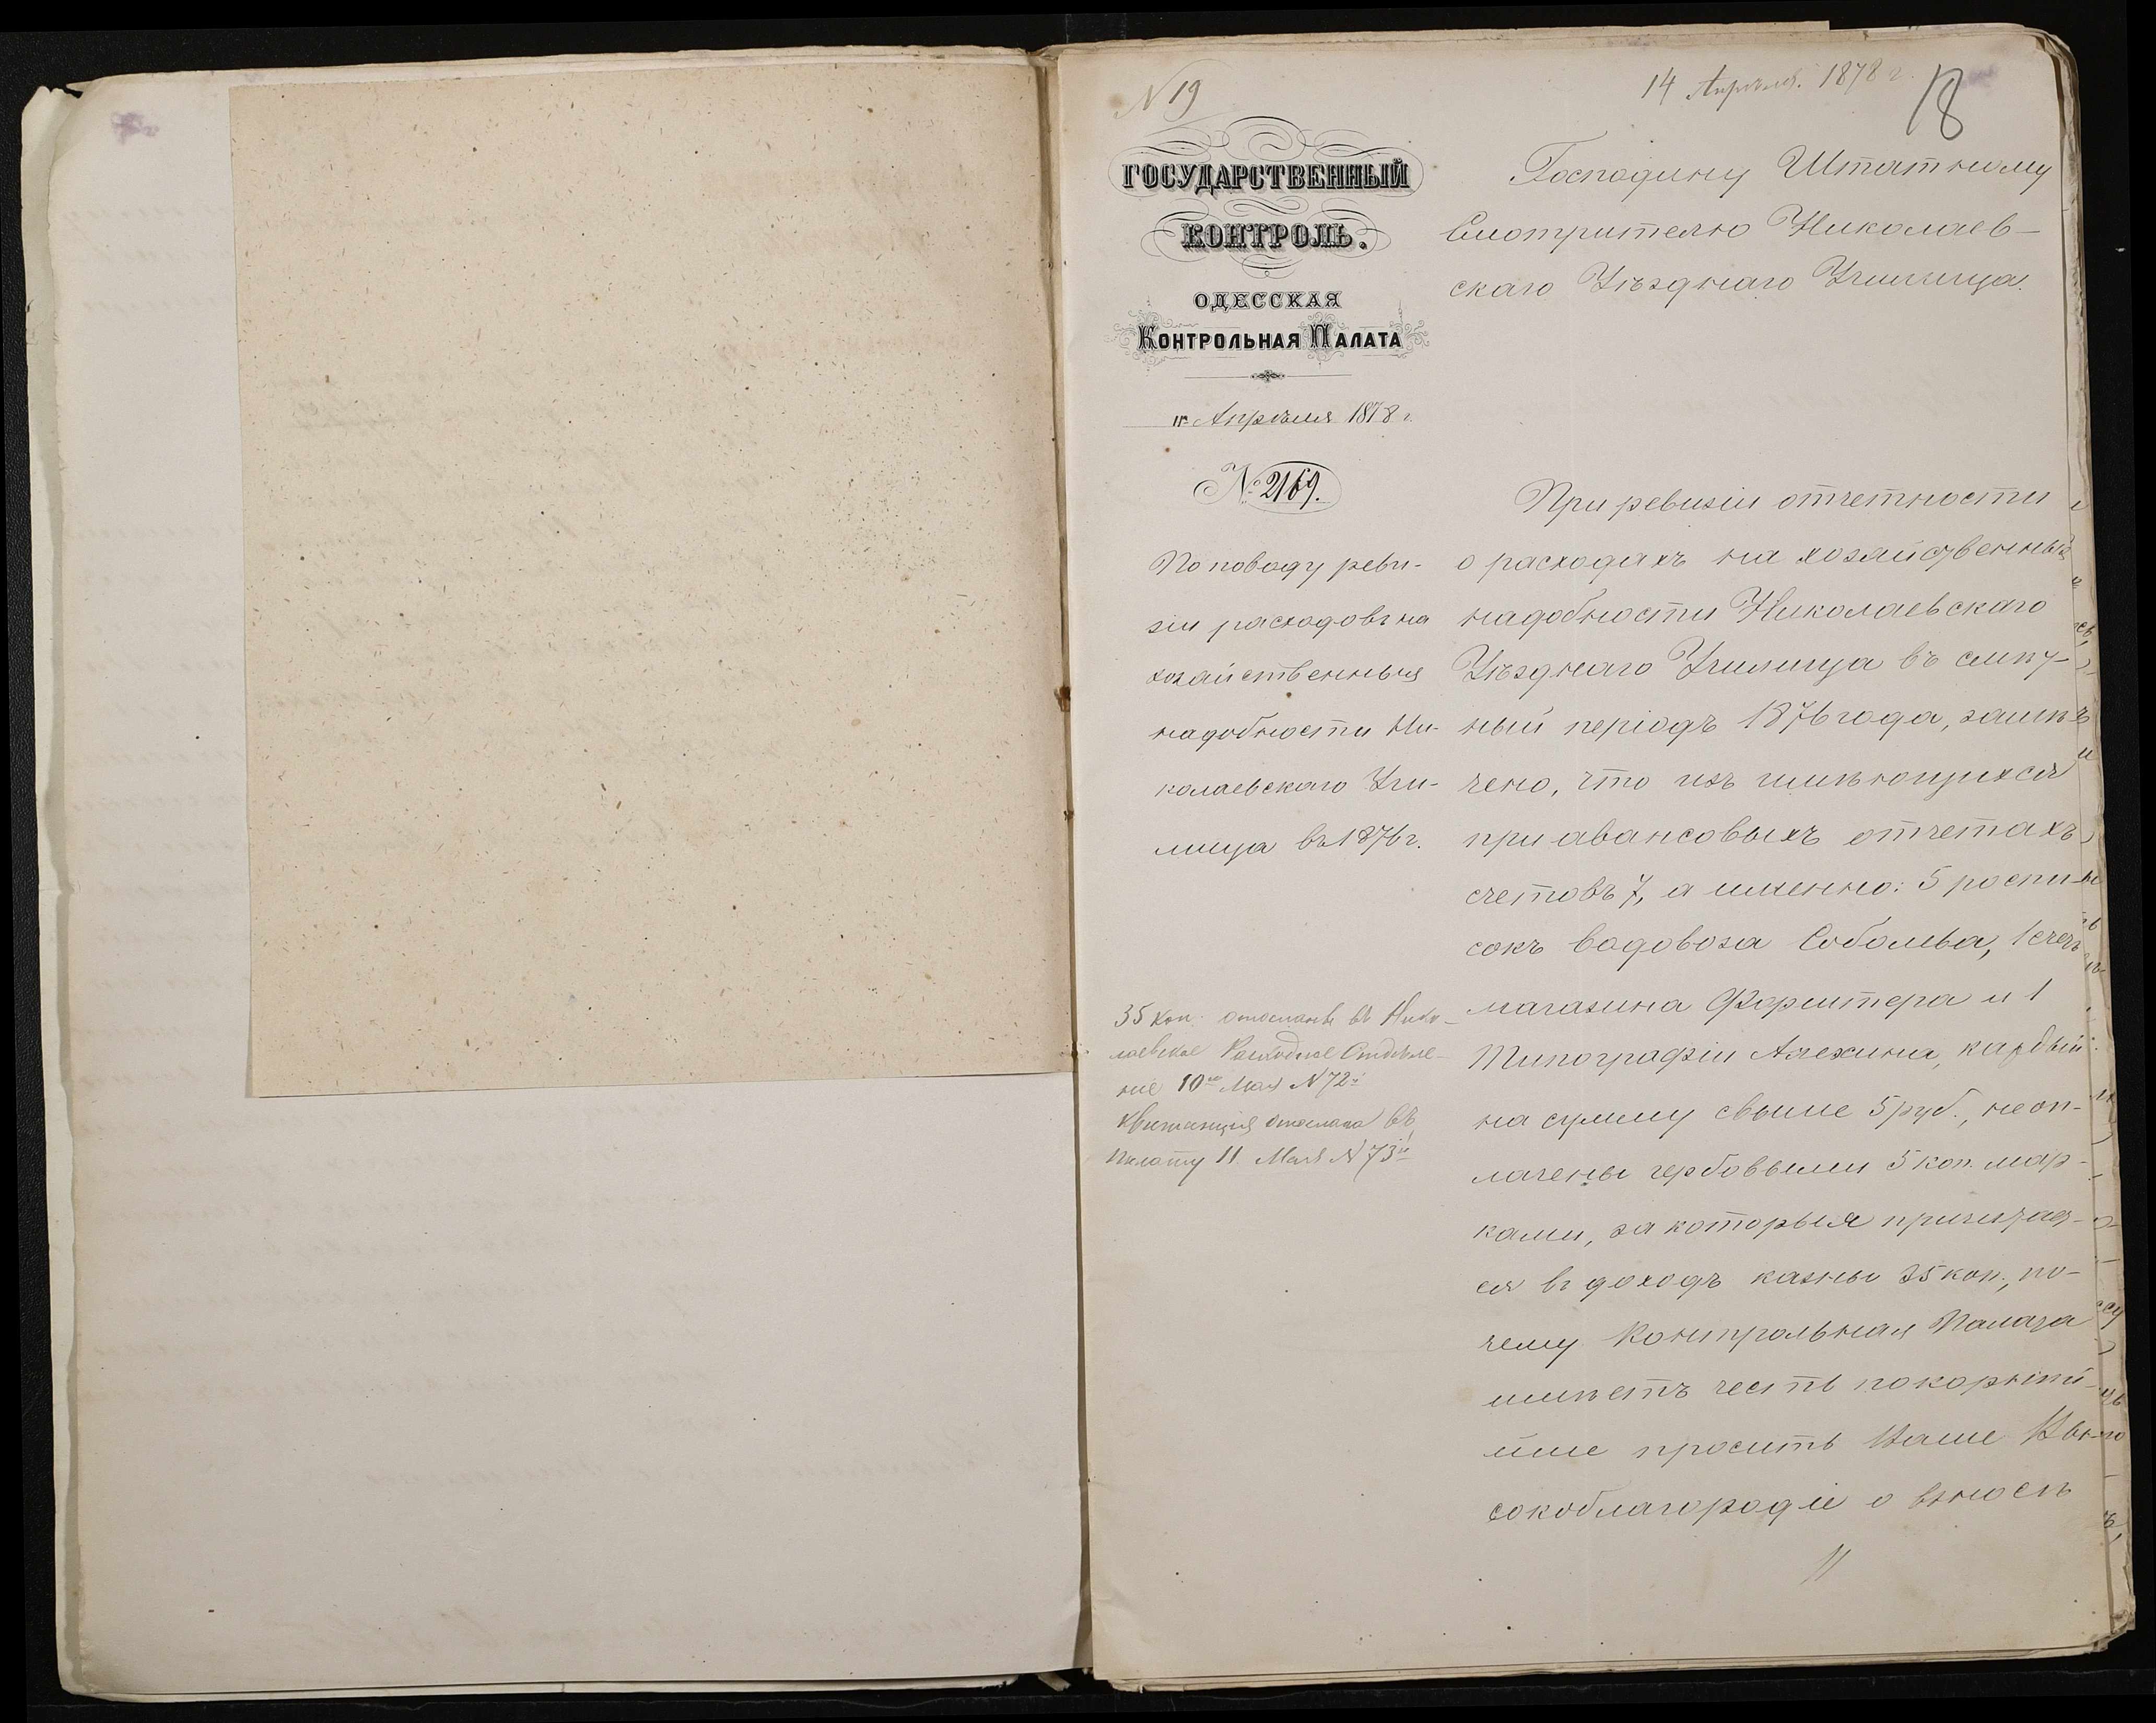 N 19
14 Апрѣля. 1878 г.
18
ГОСУДАРСТВЕННЫЙ
КОНТРОЛЬ.
ОДЕССКАЯ
КОНТРОЛЬНАЯ ПАЛАТА
Апрѣля 1878 г.
№ 2169.
По поводу реви-
зіи расходовъ на
хозяйственныя
надобности Ни-
колаевскаго Учи-
лища въ 1876 г.
35 коп. отосланы въ Нико-
лаевское Расходное Отдѣле-
ніе 10го Мая N 72й
Квитанція отослана въ
Палату 11 Мая N 73й
Господину Штатному
Смотрителю Николаев-
скаго Уѣзднаго Училища.
При ревизіи отчетности
о расходахъ на хозяйственныя
надобности Николаевскаго
Уѣзднаго Училища въ смѣт-
ный періодъ 1876 года, замѣ-
чено, что изъ имѣющихся
при авансовыхъ отчетахъ
счетовъ 7, а именно: 5 роспи-
сокъ водовоза Соболева, 1 счетъ
магазина и 1
Типографіи каждый
на сумму свыше 5 руб., не оп-
лачены гербовыми 5 коп. мар-
ками, за которыя причитает-
ся въ доходъ казны 35 коп., по-
чему Контрольная Палата
имѣетъ честь покорнѣй-
ше просить Ваше Вы-
сокоблагородіе о взносѣ